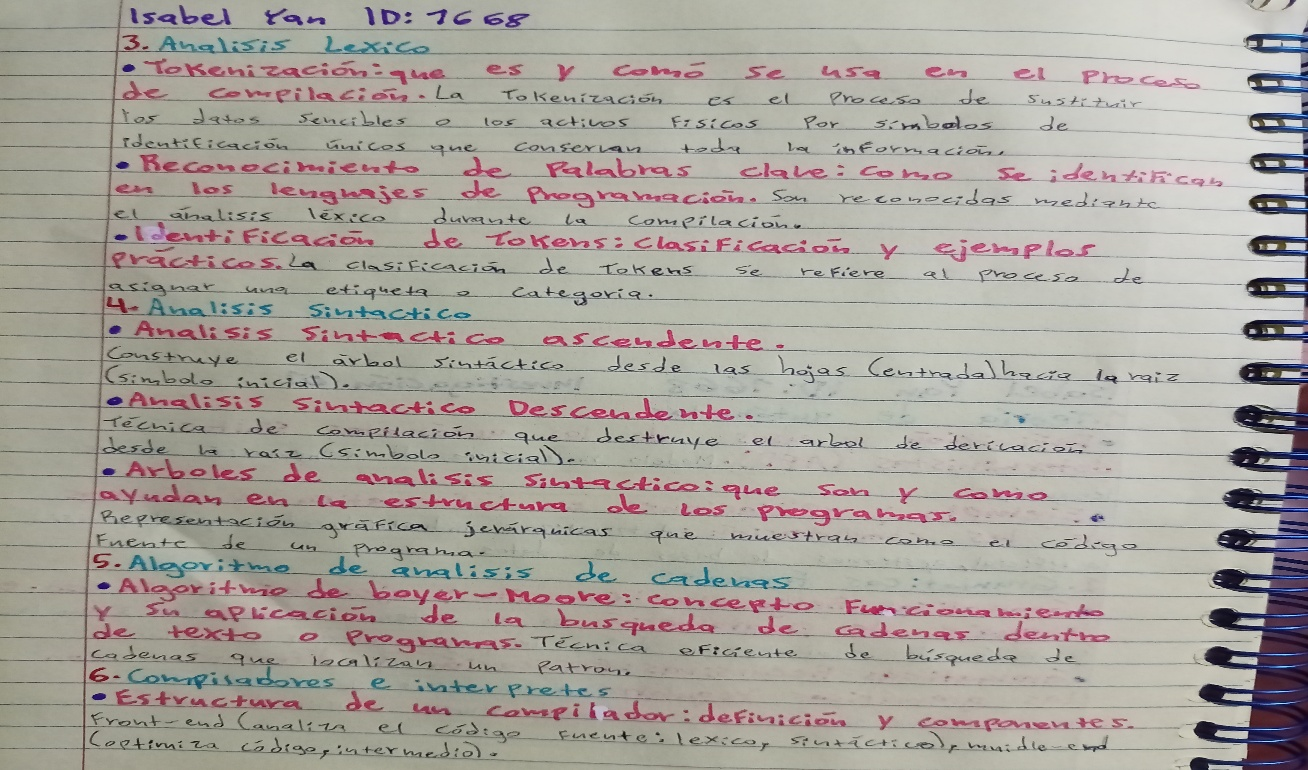 Isabel Yan ID: 7668
3. Analisis Lexico
• Tokenización: que es y comó se usa en el proceso
de compilación. La Tokenización es el Proceso de sustituir
los datos sencibles o los activos Físicos Por simbolos de
identificación únicos que conservan toda la información.
• Reconocimiento de Palabras clave: como se identifican
en los lenguajes de Programación. Son reconocidas mediante
el análisis léxico durante la compilación.
• Identificación de Tokens: clasificación y ejemplos
Practicos. La clasificación de Tokens se refiere al proceso de
asignar una etiqueta o categoria.
4. Analisis Sintactico
• Analisis Sintactico ascendente.
Construye el árbol sintáctico desde las hojas (entrada) hacia la raiz
(simbolo inicial).
• Analisis Sintactico Descendente.
Técnica de compilación que destruye el arbol de derivación
desde la raiz (simbolo inicial).
• Arboles de analisis Sintactico: que son y como
ayudan en la estructura de los programas.
Representación gráfica jerárquicas que muestran como el código
Fuente de un programa.
5. Algoritmo de analisis de cadenas
• Algoritmo de boyer-Moore: concepto Funcionamiento
y su aplicación de la busqueda de cadenas dentro
de texto o Programas. Técnica eficiente de búsqueda de
cadenas que localizan un Patron.
6. Compiladores e interpretes
• Estructura de un compilador: definición y componentes.
Front-end (analiza el código Fuente: lexico, sintáctico), muidle-end
(optimiza código, intermedio).